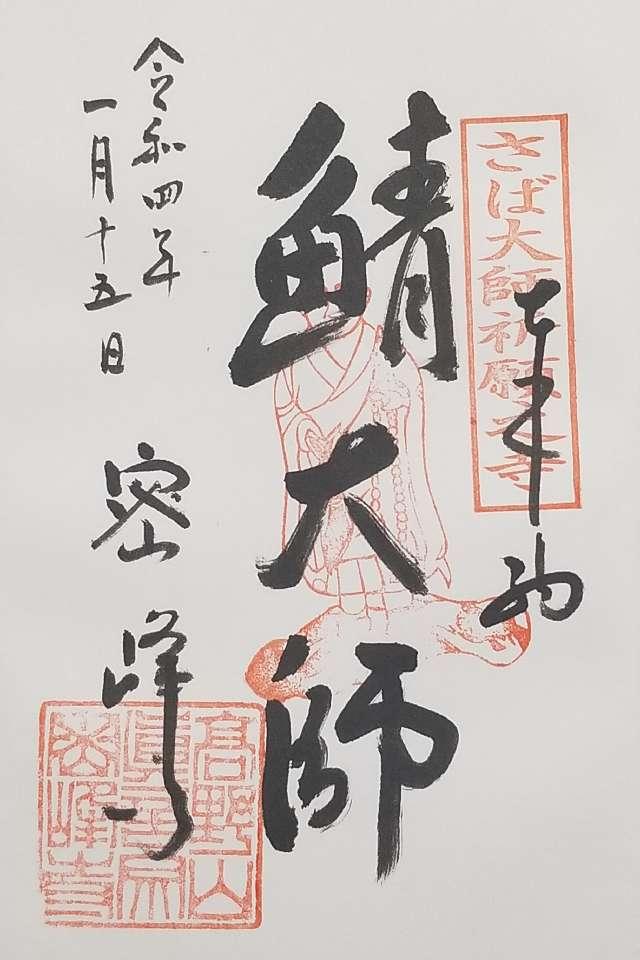 奉納
さば大師祈願之寺
鯖大師
令和四年
一月十五日
密峰寺
高野山
真言宗
密峰寺